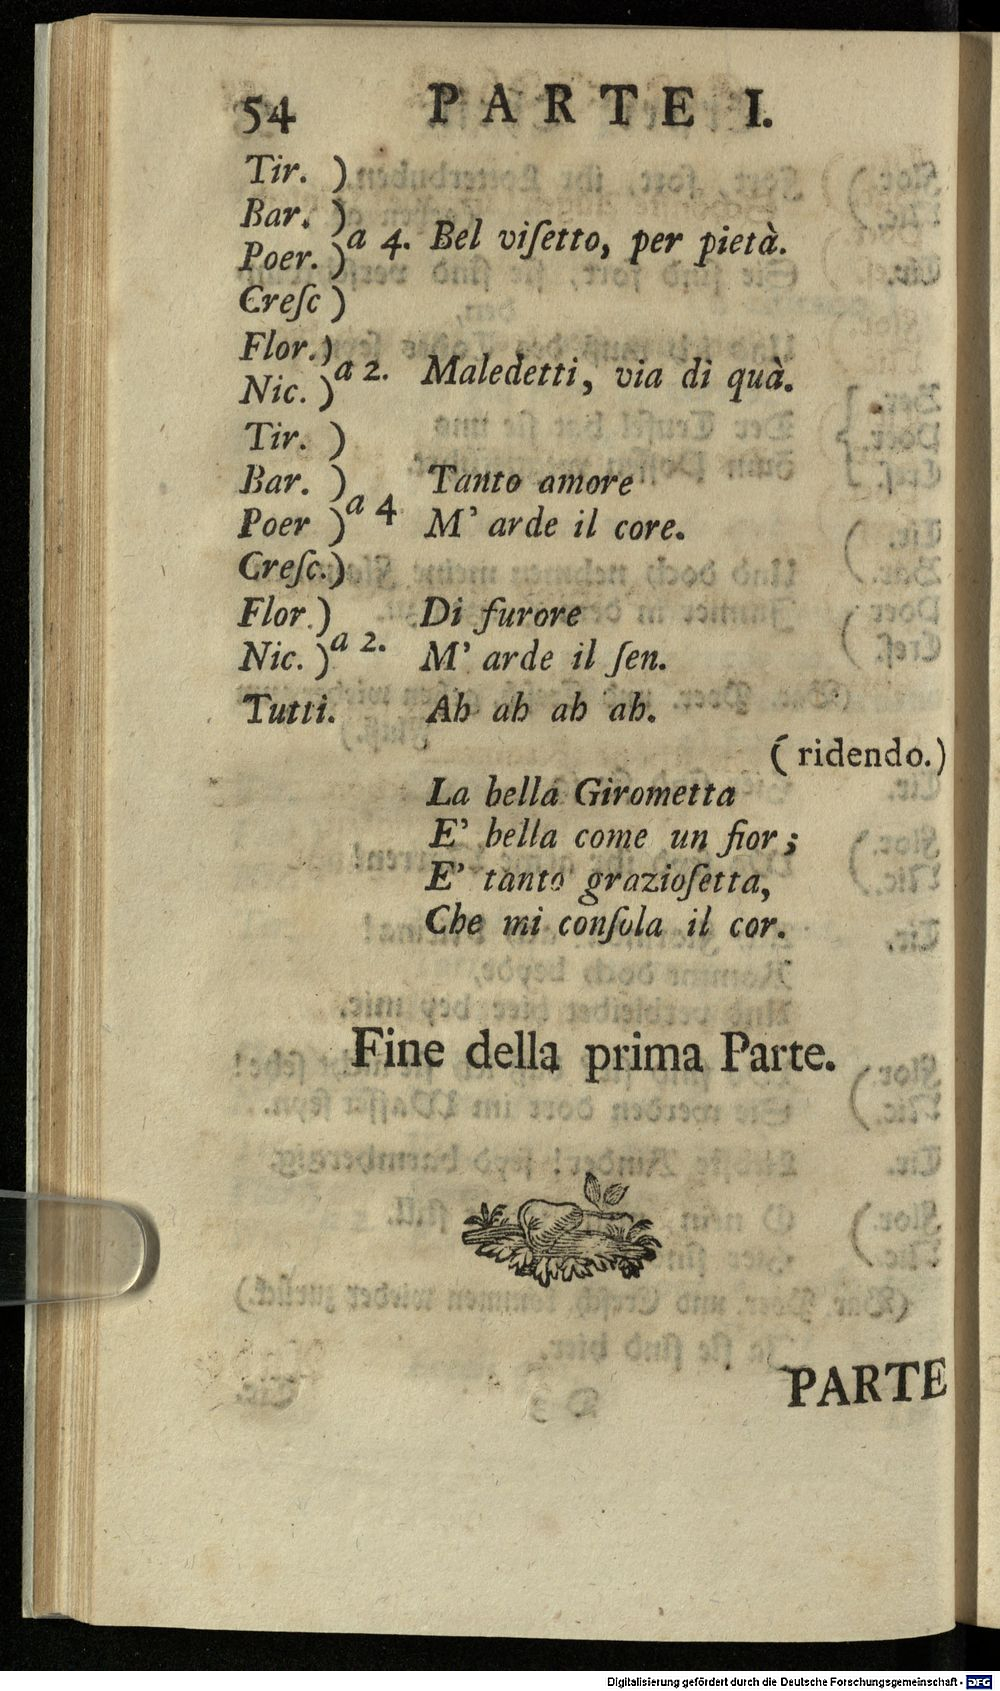 54 PARTE I.
Tir. )
Bar. )
a 4. Bel viſetto, per pietà.
Poer. )
Creſc )
Flor. )
a 2. Maledetti, via di quà.
Nic. )
Tir. )
Bar. ) Tanto amore
a 4
Poer ) M' arde il core.
Creſc. )
Flor. ) Di furore
a 2.
Nic. ) M' arde il ſen.
Tutti. Ah ah ah ah.
( ridendo. )
La bella Girometta
E' bella come un fior ;
E' tanto grazioſetta,
Che mi conſola il cor.
Fine della prima Parte.
PARTE
Digitalisierung gefördert durch die Deutsche Forschungsgemeinschaft - DFG